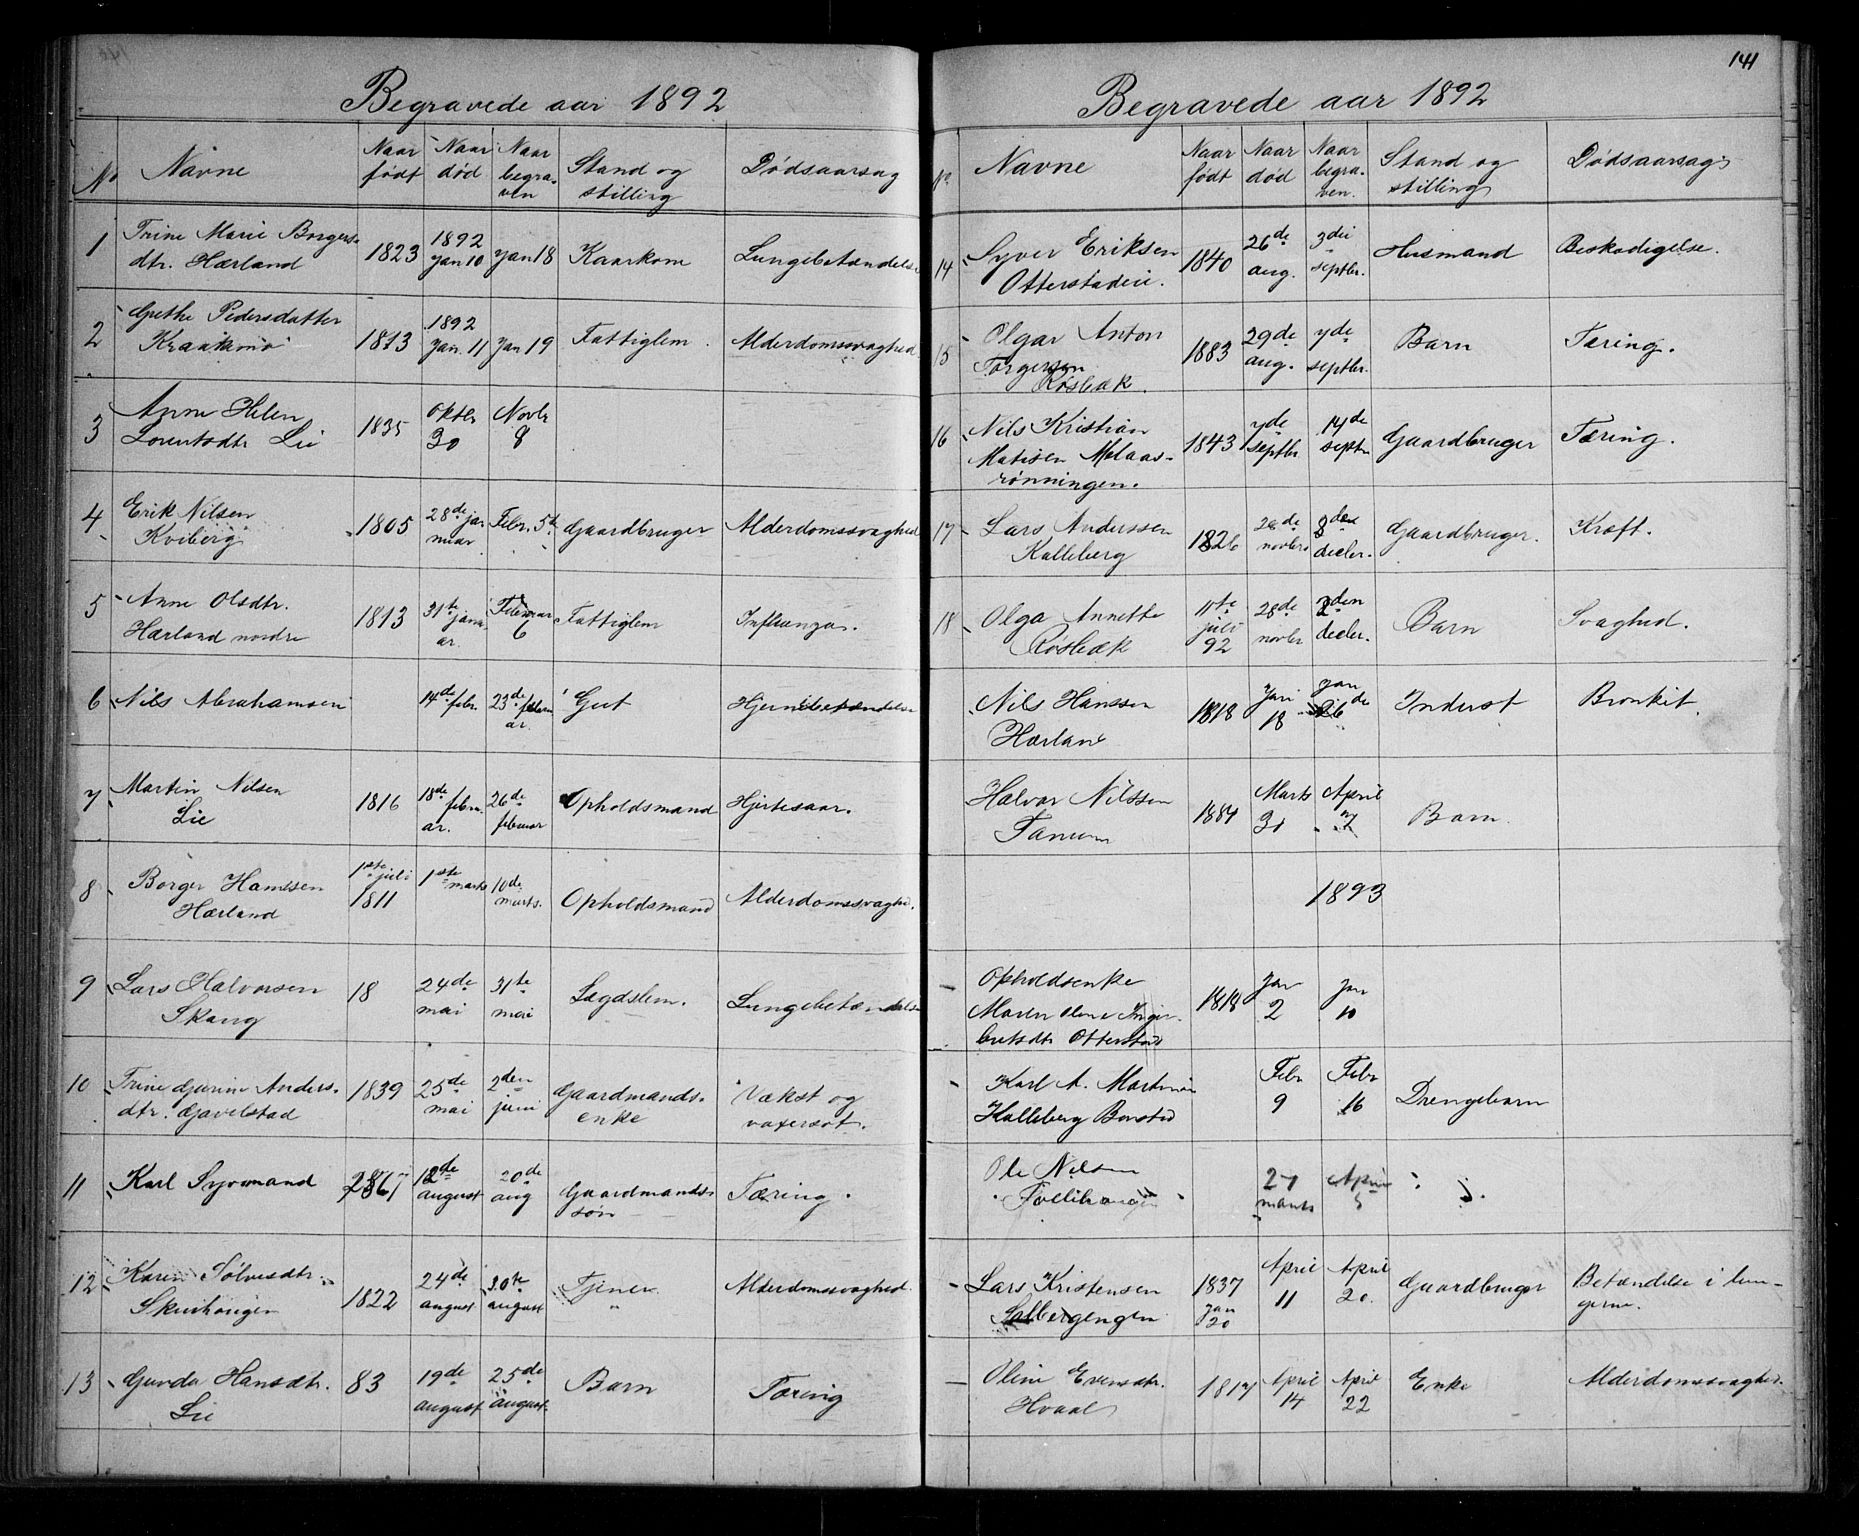 Begravede aar 1892
No Navne Naar født Naar død Naar begra-ven Stand og stilling Dødsaarsag
1 Trine Marie Borgers-
dtr. Hærland 1823 1892 Jan 10 Jan 18 Kaarkone Lungebetændelse
2 Grethe Pedersdatter
1813 1892 Jan. 11 Jan 19 Fattiglem. Alderdomssvaghed
3 Anne Helen
Lorentsdtr Lie 1835 Oktbr 30 Novbr 8
4 Erik Nilsen
Kviberg 1805 28de januar Febr. 5te Gaardbruger Alderdomssvaghed
5 Anne Olsdtr.
Hærland nordre 1813 31te januar. Februar 6 Fattiglem Influenza.
6 Nils Abrahamsen 14de febr. 23de februar. Gut Hjernebetændelse
7 Martin Nilsen
Lie 1816 18de februar. 26de februar Opholdsmand Hjertesaar.
8 Borger Hanssen
Hærland 1ste juli 1811 1ste marts 10de marts. Opholdsmand Alderdomssvaghed.
9 Lars Halvorsen
Skaug 18 24de mai 31te mai Lægdslem. Lungebetændelse
10 Trine Gurine Anders-
dtr. Gavelstad 1839 25de mai 2den juni Gaardmands-enke Vækst og vatersot.
11 Karl Syvomand 1867 12de august 20de aug Gaardmands-søn Tæring.
12 Karen Sølvesdtr.
Skurhaugen 1822 24de august 30te august Tjener Alderdomssvaghed.
13 Gunda Hansdtr.
Lie 83 19de august 25de august. Barn Tæring
141
Begravede aar 1892
No Navne Naar født Naar død Naar begra-ven. Stand og stilling Dødsaarsag
14 Syver Eriksen
Otterstadeie. 1840 26de aug. 3die septbr. Husmand Beskadigelse.
15 Olgar Anton
Torgersen
Røsbæk. 1883 29de aug. 7de septbr. Barn Tæring.
16 Nils Kristian
Matisen Melaas-
rønningen. 1843 7de septbr 14de septbr Gaardbruger Tæring.
17 Lars Anderssen
Kalleberg 1826 novbr. decbr. Gaardbruger. Kræft.
18 Olga Annette
Røsbæk 11te juli 92 28de novbr decbr. Barn Svaghed.
Nils Hanssen
Hærland 1818 Jan 18 Jan 26de Inderst Bronkit.
Halvor Nilssen
Tanum 1884 Marts 30 April 7 Barn
1893
Opholdsenke
Maren Oline Inge-
bretsdtr Otterstad 1818 Jan 2 Jan 10
Karl A. Martinsen
Kalleberg Bonsted Febr 9 Febr 16 Drengebarn
Ole Nilsen
27 marts April 5
Lars Kristensen
Solbergengen 1837 Jan 20 April 11 April 20. Gaardbruger Betændelse i lun-gerne.
Oline Evensdtr.
Hvaal 1817 April 14 April 22 Enke Alderdomssvaghed.